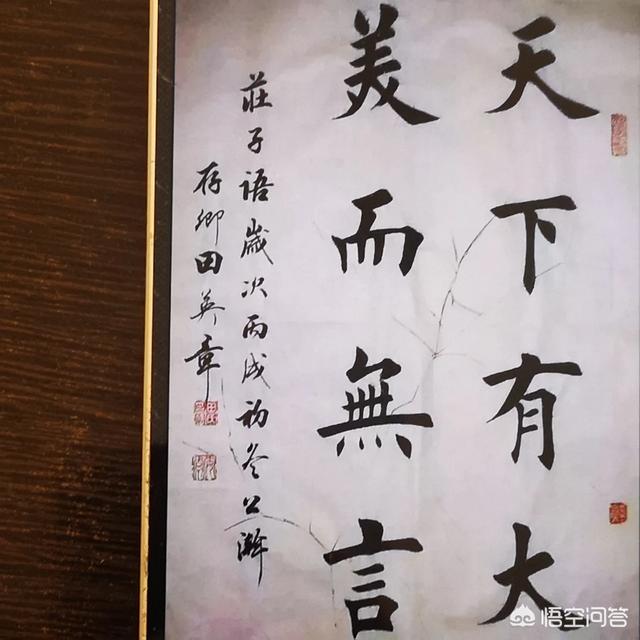 天下有大
美而無言
莊子語歲次丙戌初冬
存卿田英章
悟空问答